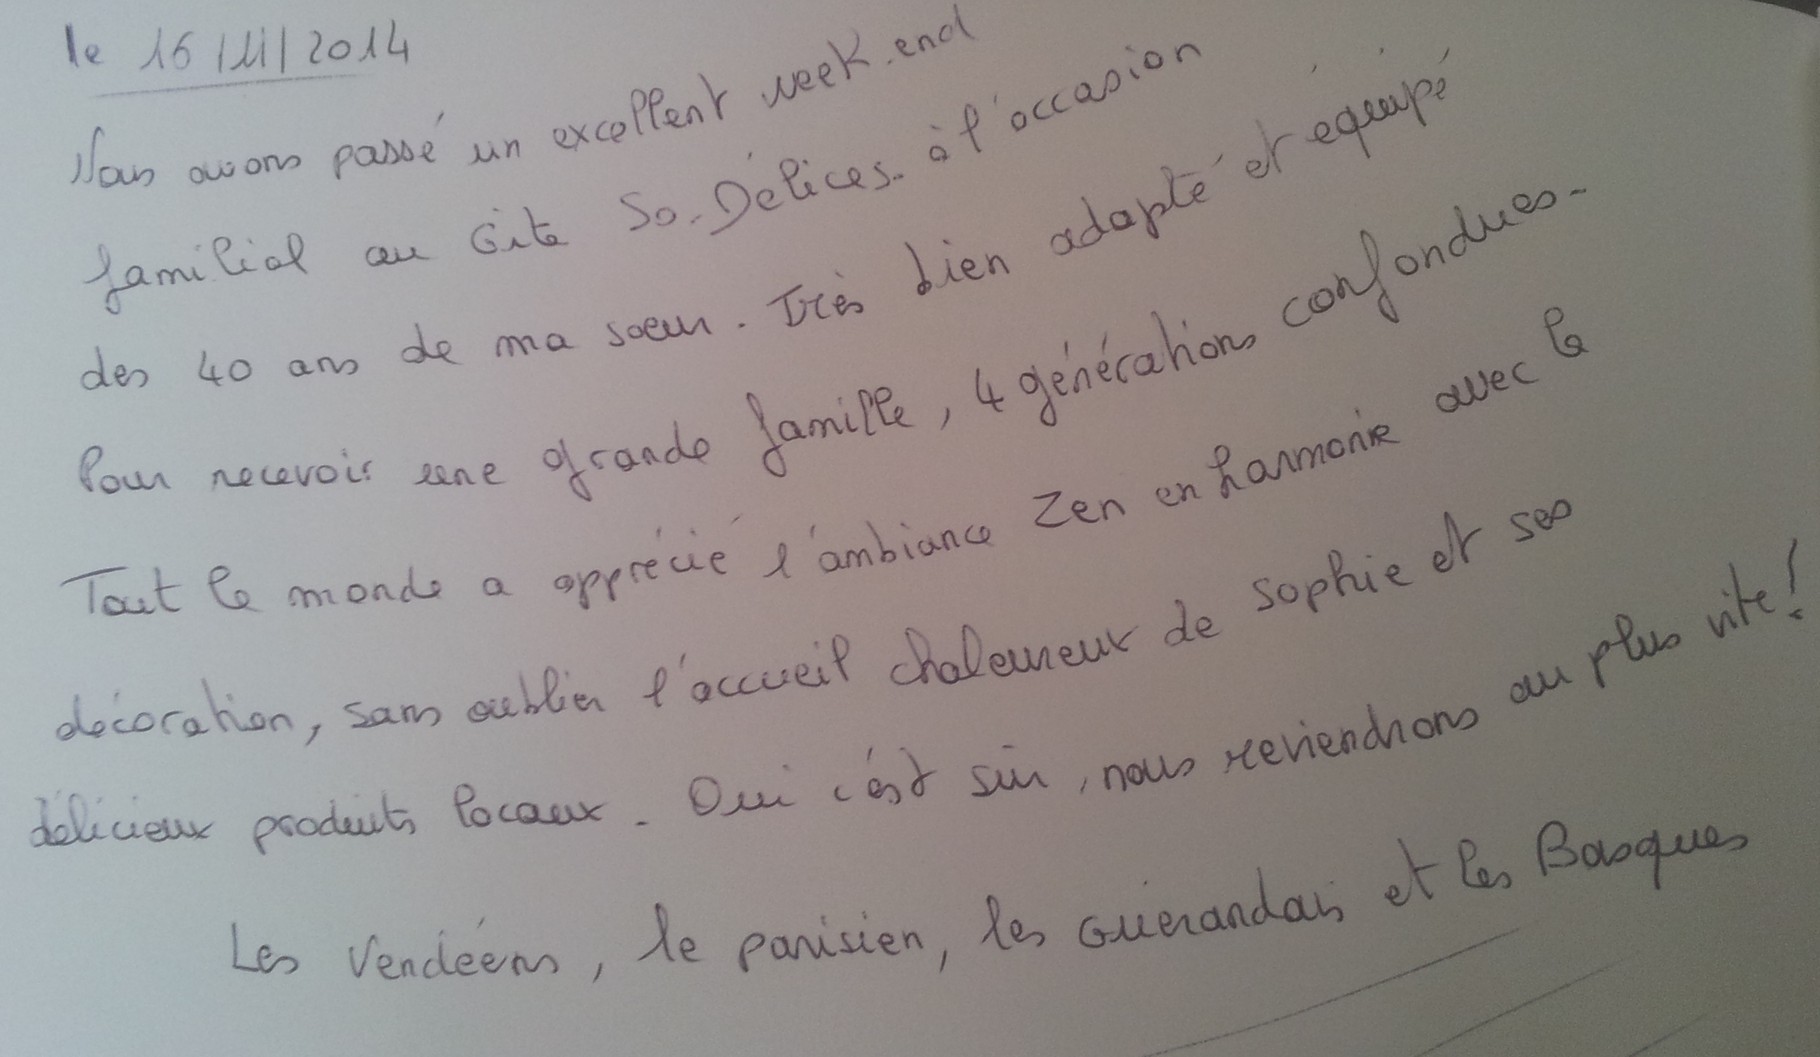 le 16/11/2014
Nous avons passé un excellent week-end
familial au Gîte So-Délices - à l'occasion
des 40 ans de ma soeur. Très bien adapté et équipé
Pour recevoir une grande famille, 4 générations confondues -
Tout le monde a apprécié l'ambiance Zen en harmonie avec la
décoration, sans oublier l'accueil chaleureux de Sophie et ses
délicieux produits locaux. Oui c'est sûr, nous reviendrons au plus vite !
Les Vendéens, le parisien, les Guérandais et les Basques